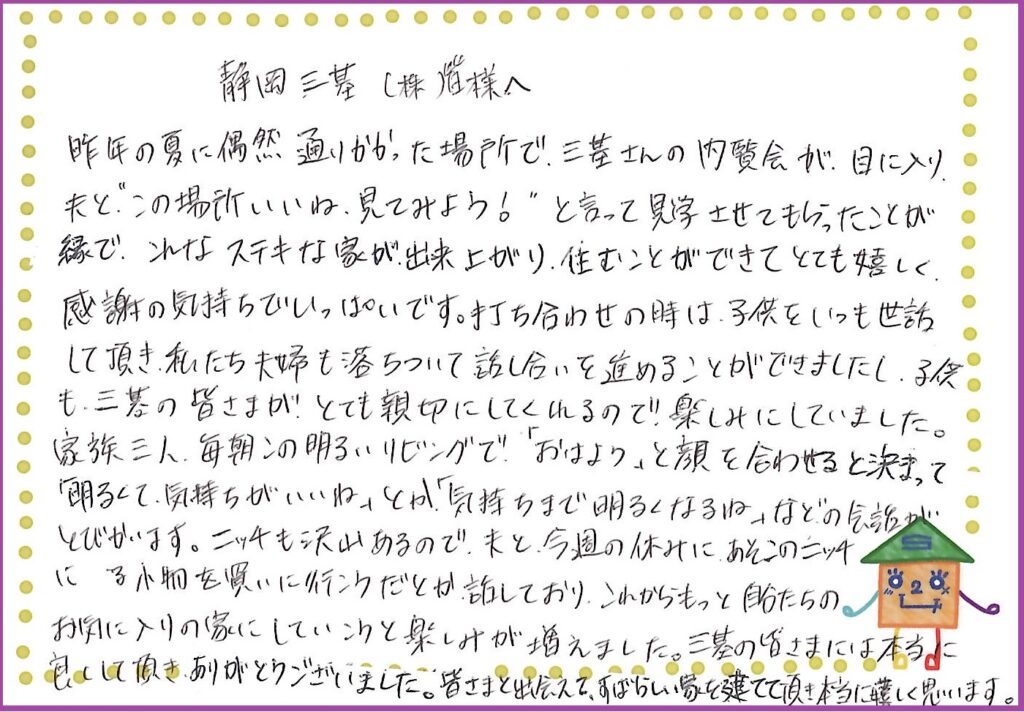 静岡三基(株)皆様へ
昨年の夏に偶然通りかかった場所で、三基さんの内覧会が、目に入り、
夫と、"この場所いいね、見てみよう!"と言って見学させてもらったことが
縁で、こんなステキな家が出来上がり、住むことができてとても嬉しく、
感謝の気持ちでいっぱいです。打ち合わせの時は、子供をいつも世話
して頂き、私たち夫婦も落ちついて話し合いを進めることができましたし、子供
も、三基の皆さまが、とても親切にしてくれるので楽しみにしていました。
家族三人、毎朝この明るいリビングで、「おはよう」と顔を合わせると決まって
「明るくて、気持ちがいいね」とか、「気持ちまで明るくなるね」などの会話が
とびかいます。ニッチも沢山あるので、夫と、今週の休みに、あそこのニッチ
に る小物を買いに行こうだとか、話しており、これからもっと自分たちの
お気に入りの家にしていこうと楽しみが増えました。三基の皆さまには本当に
良くして頂き、ありがとうございました。皆さまと出会えて、すばらしい家を建てて頂き本当に嬉しく思います。